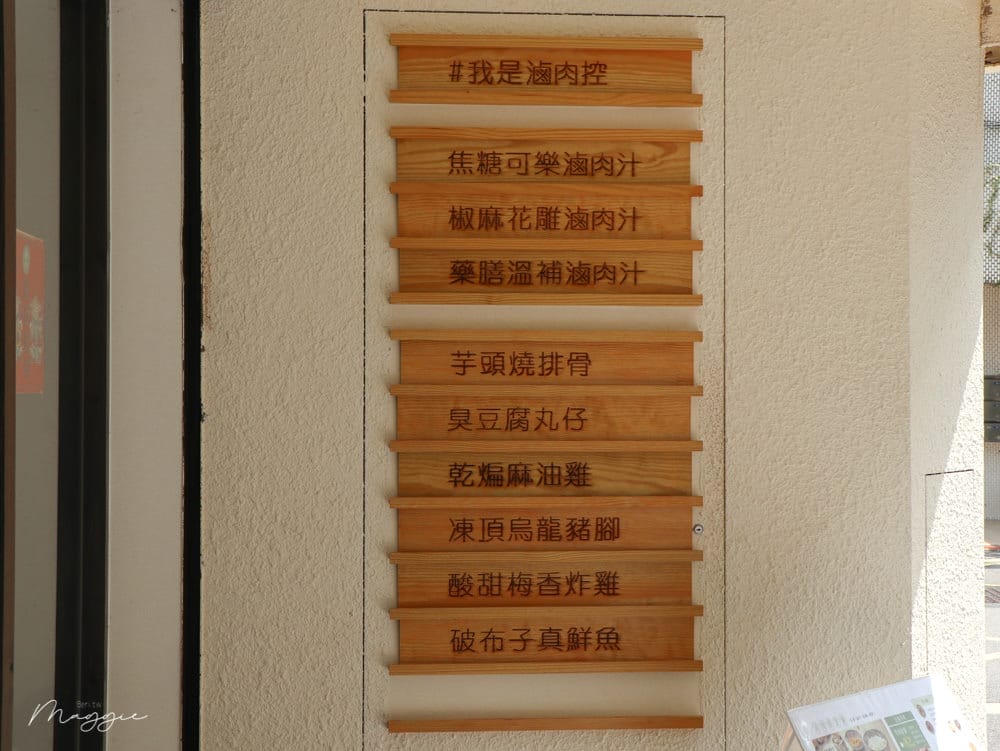 #我是滷肉控
焦糖可樂滷肉汁
椒麻花雕滷肉汁
藥膳溫補滷肉汁
芋頭燒排骨
臭豆腐丸仔
乾煸麻油雞
凍頂烏龍豬腳
酸甜梅香炸雞
破布子真鮮魚
Maggie